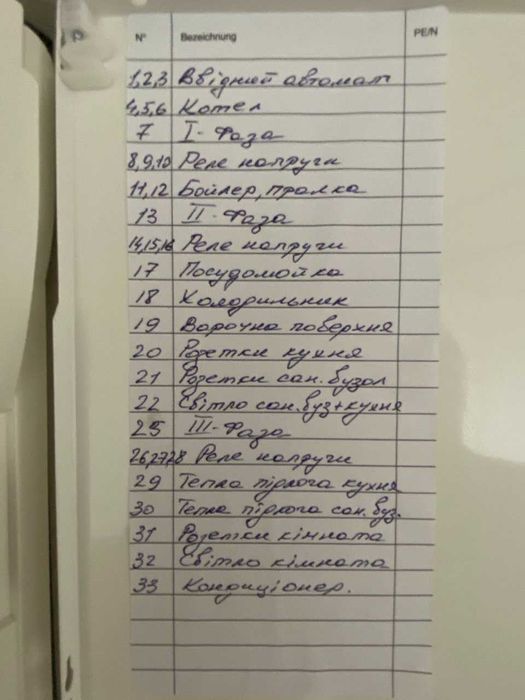 N° Bezeichnung PE/N
1,2,3 Ввідний автомат
4,5,6 Котел
7 I - Фаза
8,9,10 Реле напруги
11,12 Бойлер, пралка
13 II - Фаза
14,15,16 Реле напруги
17 Посудомойка
18 Холодильник
19 Варочна поверхня
20 Розетки кухня
21 Розетки сан. вузол
22 Світло сан. вуз+кухня
25 III - Фаза
26,27,28 Реле напруги
29 Тепла підлога кухня
30 Тепла підлога сан. вуз.
31 Розетки кімната
32 Світло кімната
33 Кондиціонер.